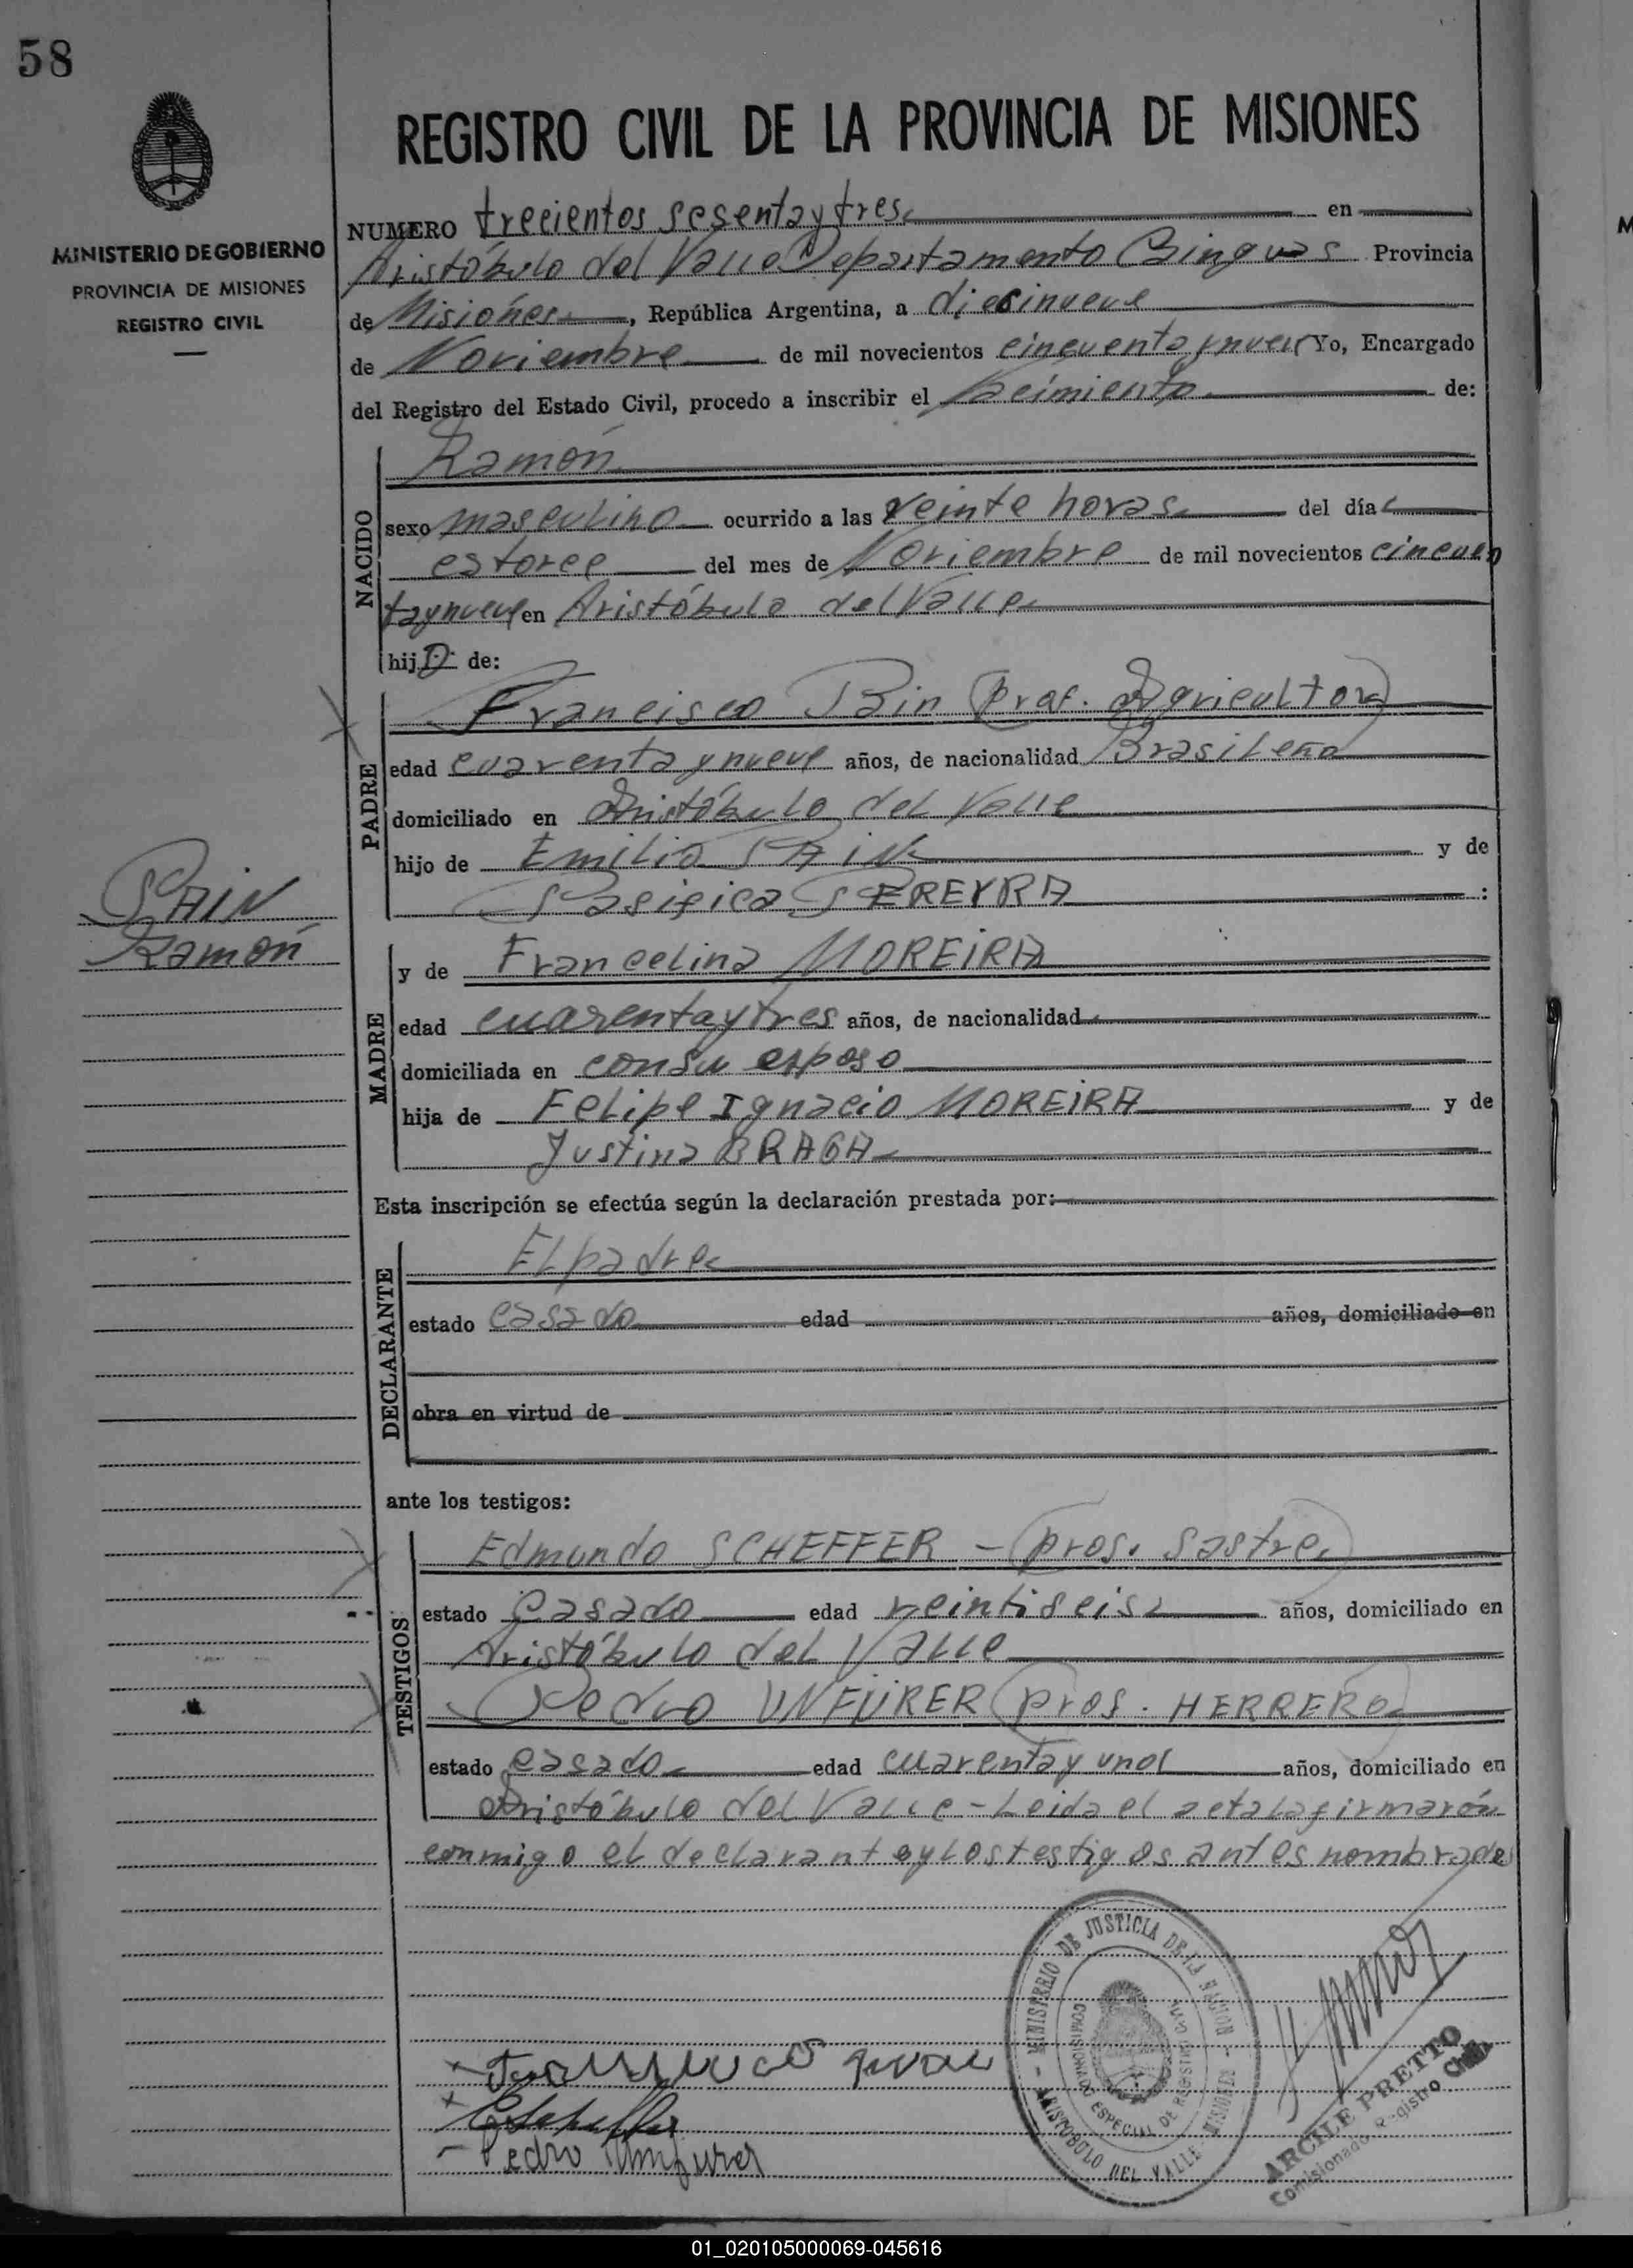 58
MINISTERIO DE GOBIERNO
PROVINCIA DE MISIONES
REGISTRO CIVIL
REGISTRO CIVIL DE LA PROVINCIA DE MISIONES
NUMERO trecientos sesenta y tres en
Aristóbulo del Valle Departamento Cainguas Provincia
de Misiónes, República Argentina, a diecinueve
de Noviembre de mil novecientos cincuenta y nueve Yo, Encargado
del Registro del Estado Civil, procedo a inscribir el Nacimiento de:
NACIDO
Ramón
sexo masculino ocurrido a las veinte horas del día
catorce del mes de Noviembre de mil novecientos cincuen
ta y nueve en Aristóbulo del Valle
hijo de:
PADRE
Francisco Pain (Prof. Agricultor)
edad cuarenta y nueve años, de nacionalidad Brasileña
domiciliado en Aristóbulo del Valle
hijo de Emilio PAIN y de
Pasifica PEREYRA :
PAIN
Ramón
MADRE
y de Francelina MOREIRA
edad cuarenta y tres años, de nacionalidad
domiciliada en con su esposo
hija de Felipe Ignacio MOREIRA y de
Justina BRAGA
Esta inscripción se efectúa según la declaración prestada por:
DECLARANTE
El padre
estado casado edad años, domiciliado en
obra en virtud de
ante los testigos:
TESTIGOS
Edmundo SCHEFFER - (Prof. Sastre)
estado Casado edad veintiseis años, domiciliado en
Aristóbulo del Valle
Pedro UNFÜRER (Prof. HERRERO)
estado casado edad cuarenta y uno años, domiciliado en
Aristóbulo del Valle - Leida el acta la firmarón
conmigo el declarante y los testigos antes nombrados
MINISTERIO DE JUSTICIA DE LA NACION
COMISIONADO ESPECIAL DE REGISTRO CIVIL
ARISTOBOLO DEL VALLE - MISIONES
ARCILE PRETTO
Comisionado Registro Civil
EScheffer
Pedro Umfurer
01_020105000069-045616